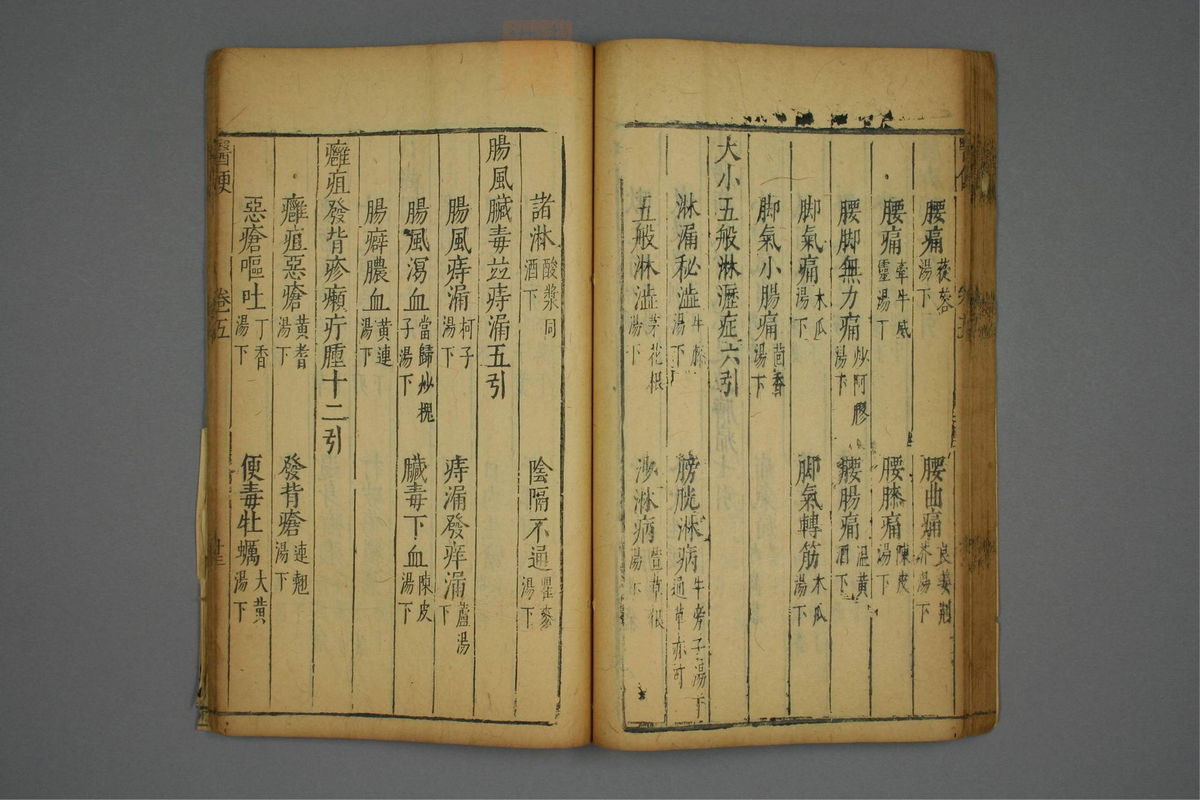 腰痛 茯苓湯下 腰曲痛 良姜荊芥湯下
腰痛 牽牛威靈湯下 腰膝痛 陳皮湯下
腰脚無力痛 炒阿膠湯下 腰腸痛 溫黃酒下
脚氣痛 木瓜湯下 脚氣轉筋 木瓜湯下
脚氣小腸痛 茴香湯下
大小五般淋瀝症六引
淋漏秘澁 牛膝湯下 膀胱淋病 牛旁子湯下通草亦可
五般淋澁 茅花根湯下 沙淋病 萱草根湯下
諸淋 酸漿同酒下 陰隔不通 瞿麥湯下
腸風臟毒並痔漏五引
腸風痔漏 柯子湯下 痔漏發痒漏 蘆湯下
腸風瀉血 當歸炒槐子湯下 臟毒下血 陳皮湯下
腸癖膿血 黃連湯下
癰疽發背疹癩疔腫十二引
癰疽惡瘡 黃耆湯下 發背瘡 連翹湯下
惡瘡嘔吐 丁香湯下 便毒牡蠣 大黃湯下
醫便 卷五